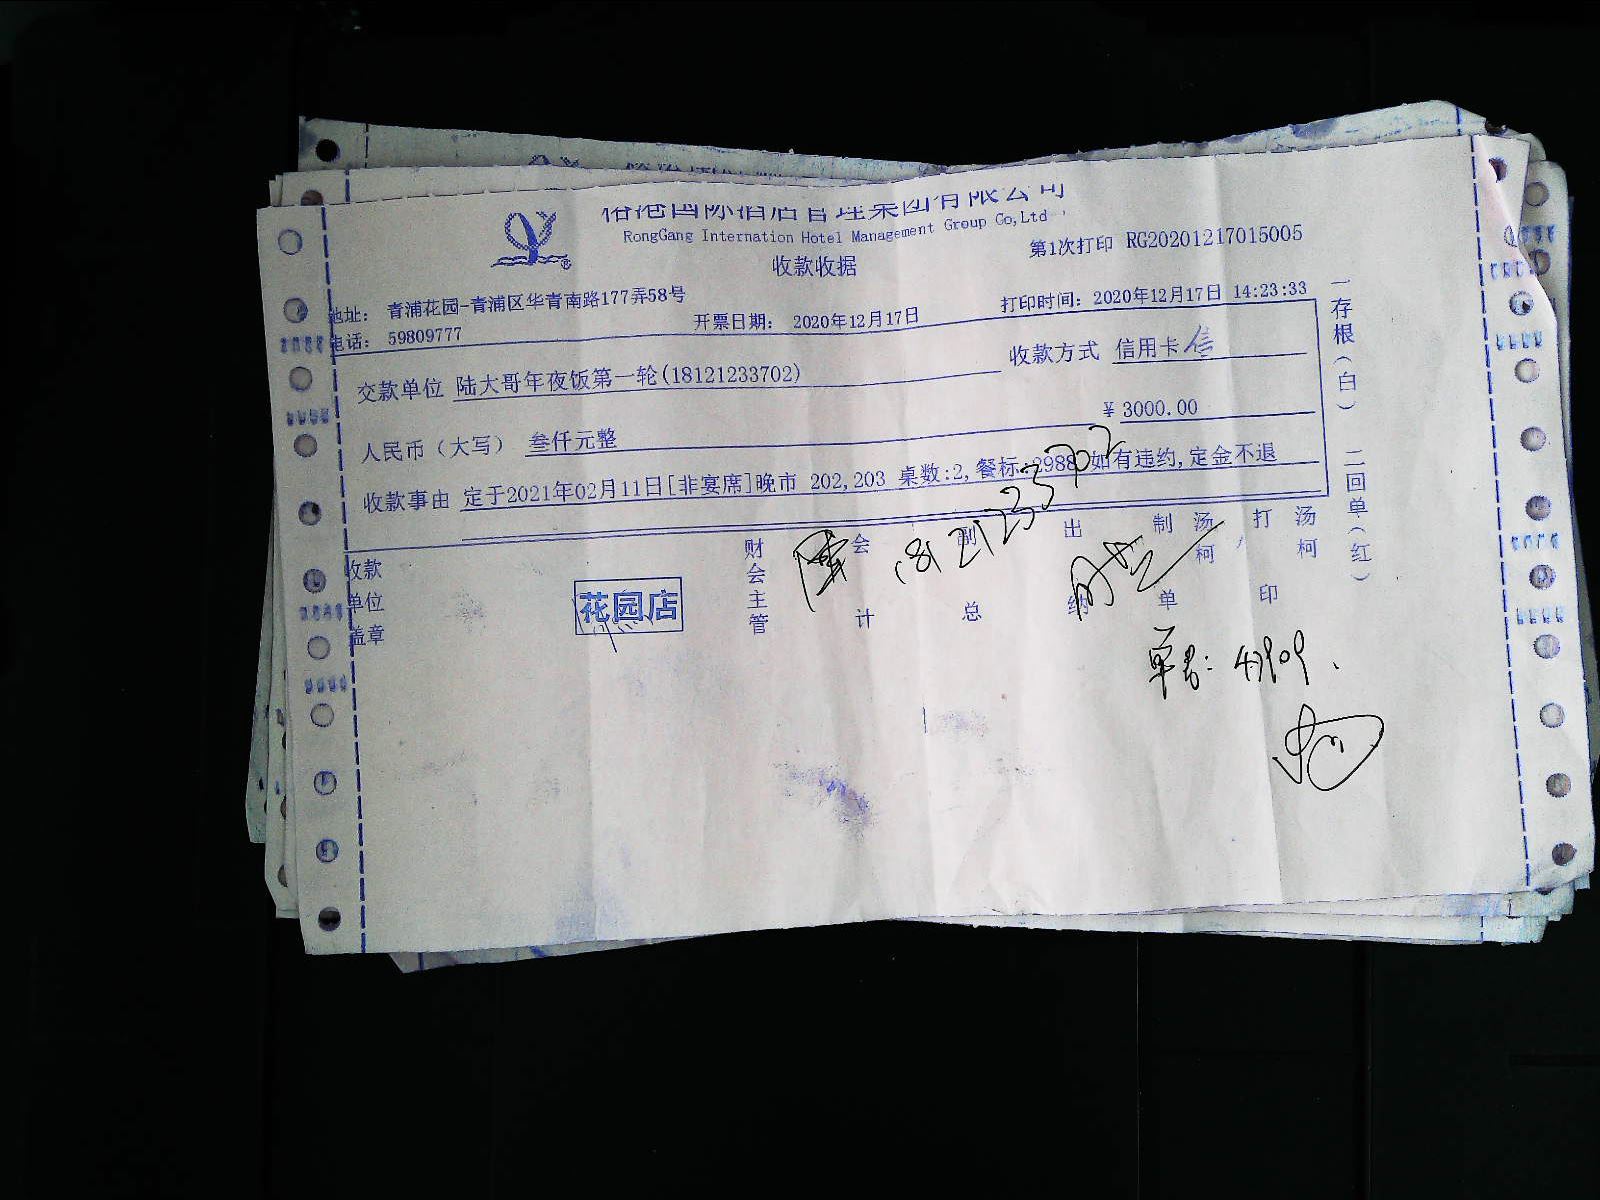 国际酒店管理集团有限公司
RongGang Internation Hotel Management Group Co,Ltd
收款收据
第1次打印 RG20201217015005
地址： 青浦花园-青浦区华青南路177弄58号
电话： 59809777
开票日期： 2020年12月17日
打印时间：2020年12月17日 14:23:33
交款单位 陆大哥年夜饭第一轮(18121233702)
收款方式 信用卡 信
人民币（大写） 叁仟元整
￥3000.00
收款事由 定于2021年02月11日[非宴席]晚市 202,203 桌数:2,餐标:2988 如有违约,定金不退
一存根（白） 二回单（红）
收款单位盖章
花园店
财会主管
会计
副总
出纳
制单 汤柯
打印 汤柯
18121233702